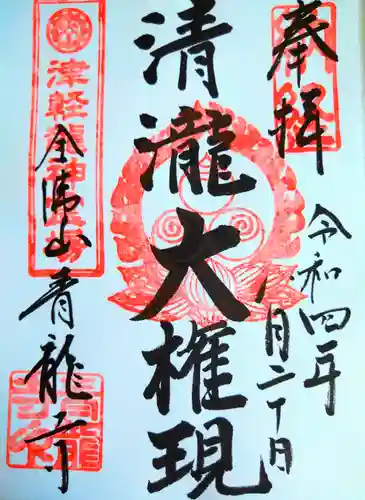 奉拝
令和四年
八月二十日
清瀧大権現
津軽龍神霊場
金沸山
青龍寺